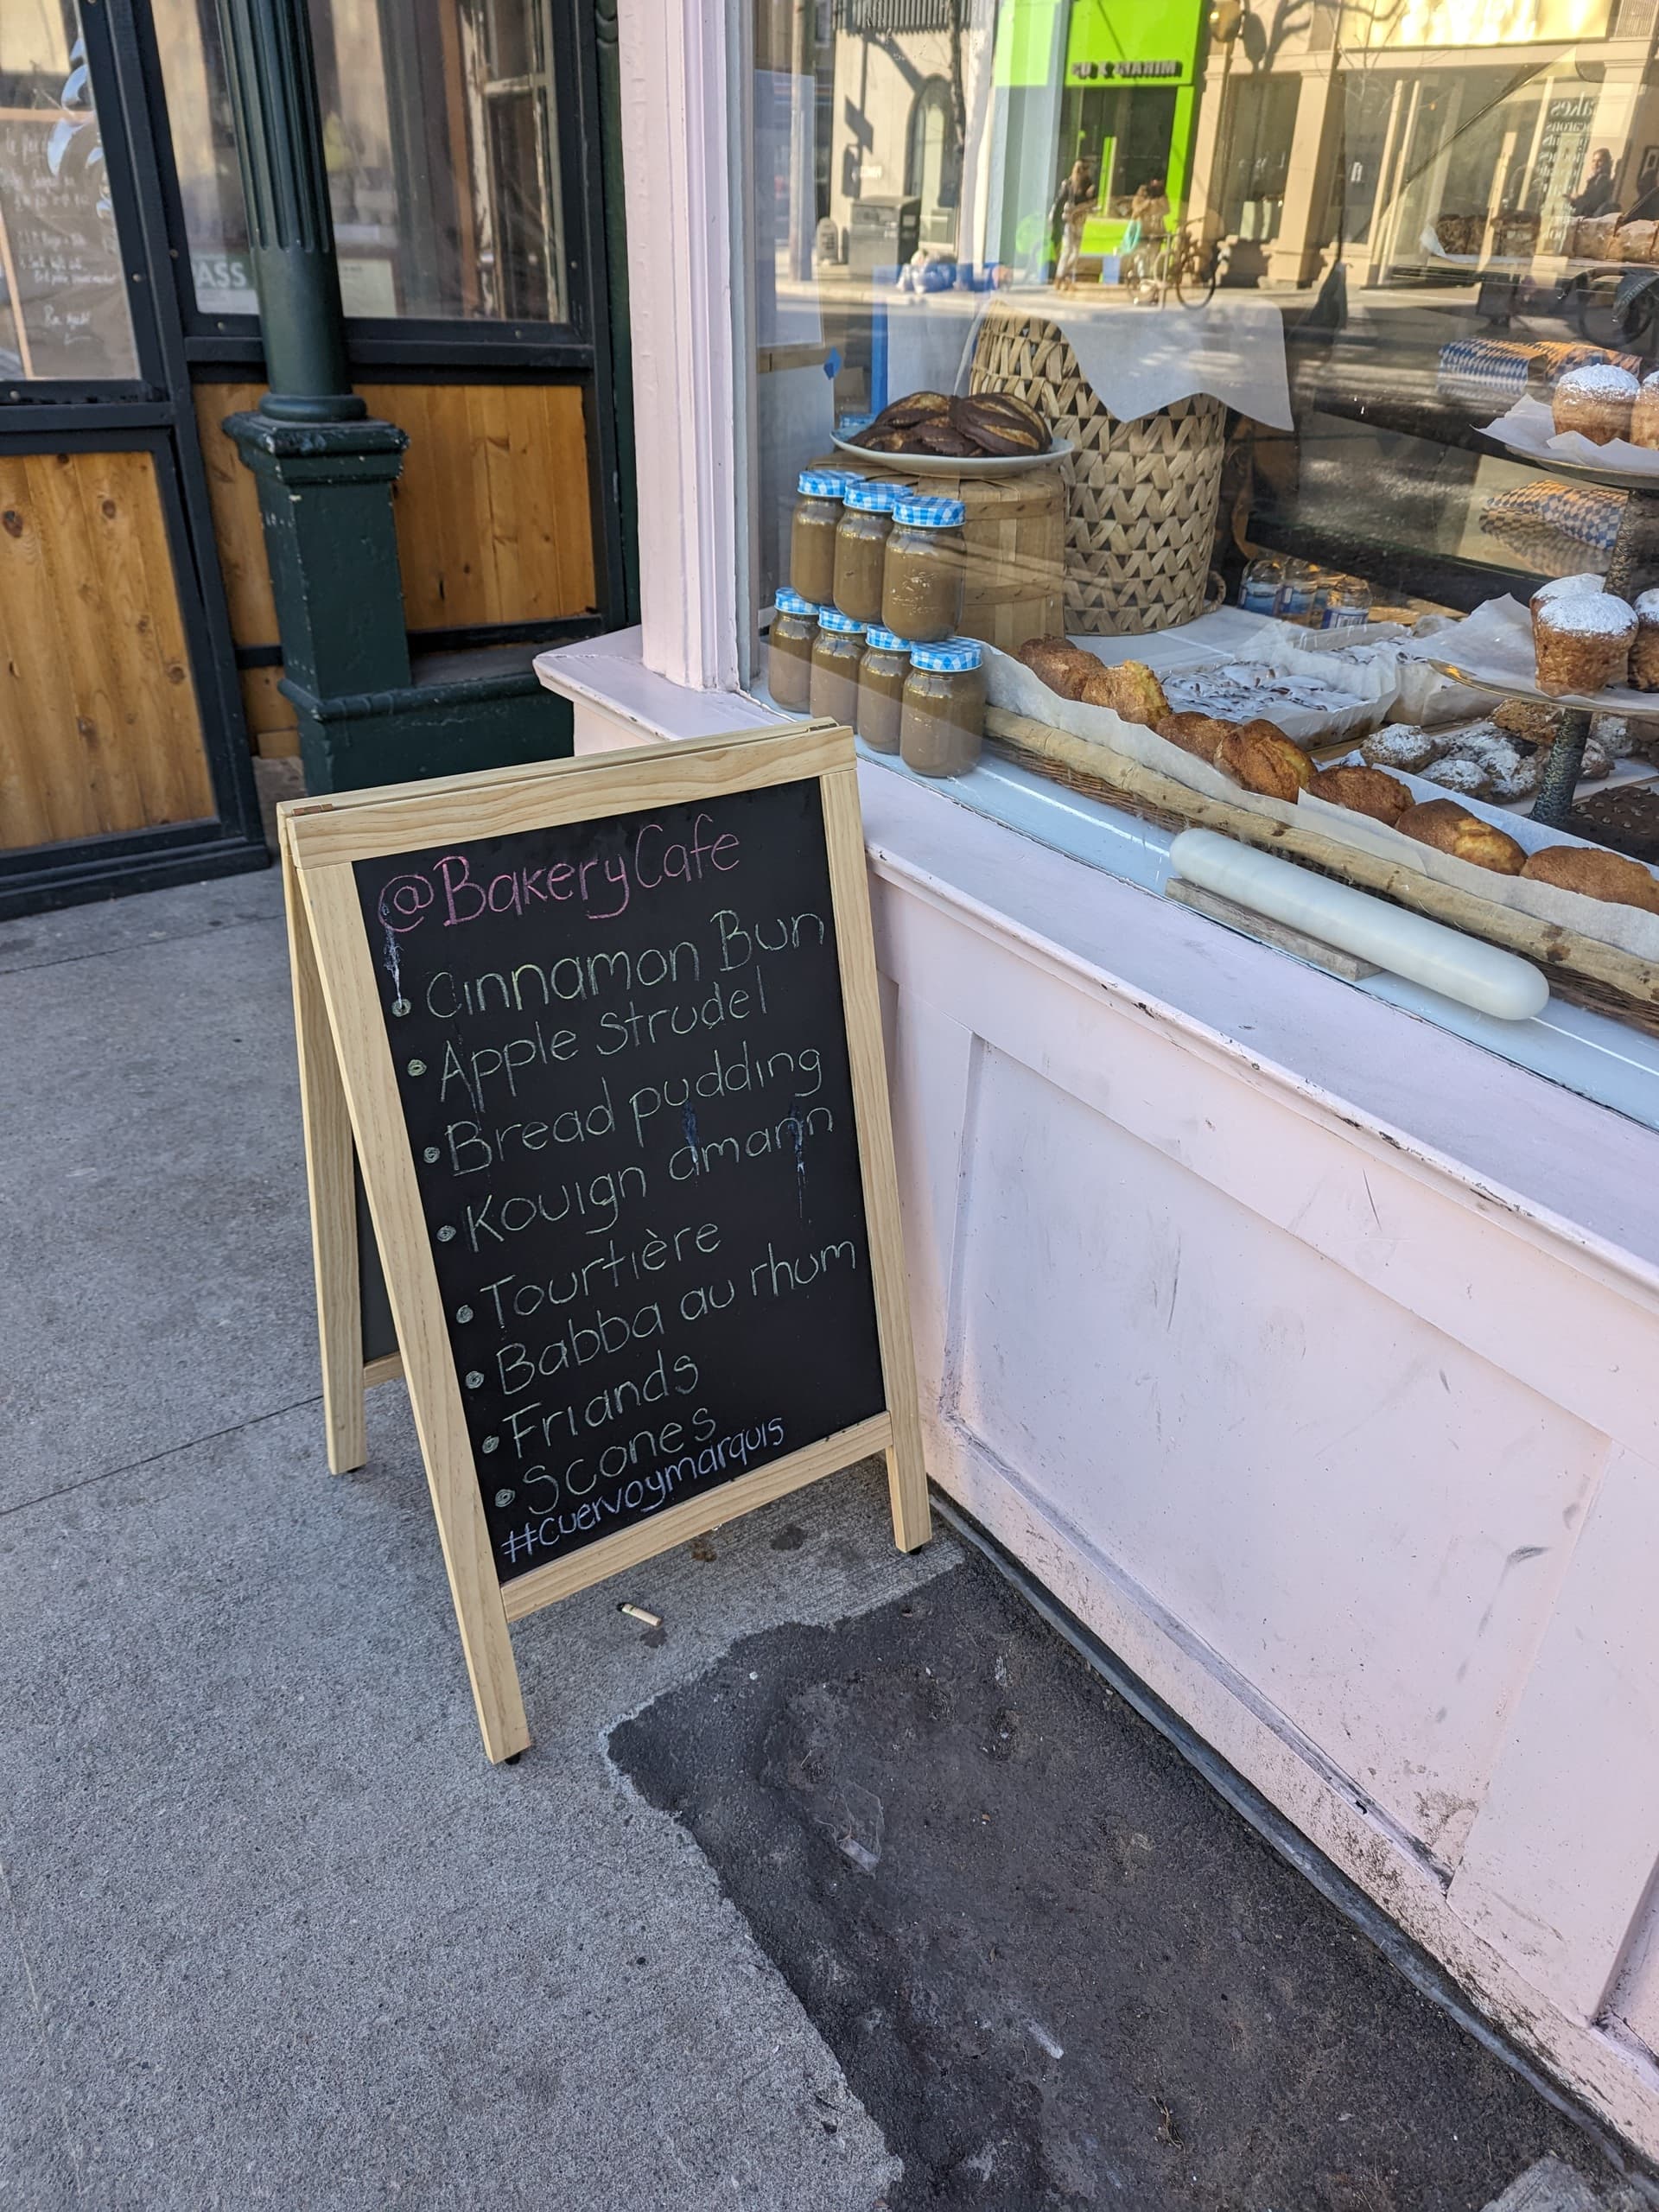 @BakeryCafe
Cinnamon Bun
Apple Strudel
Bread pudding
Kouign amann
Tourtière
Babba au rhum
Friands
Scones
#cuervoymarquis